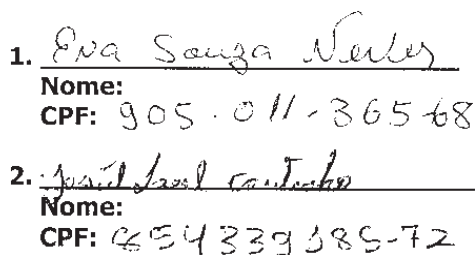 1. Eva Souza Neves
Nome:
CPF: 905.011-365-68
2.
Nome:
CPF: 654339185-72